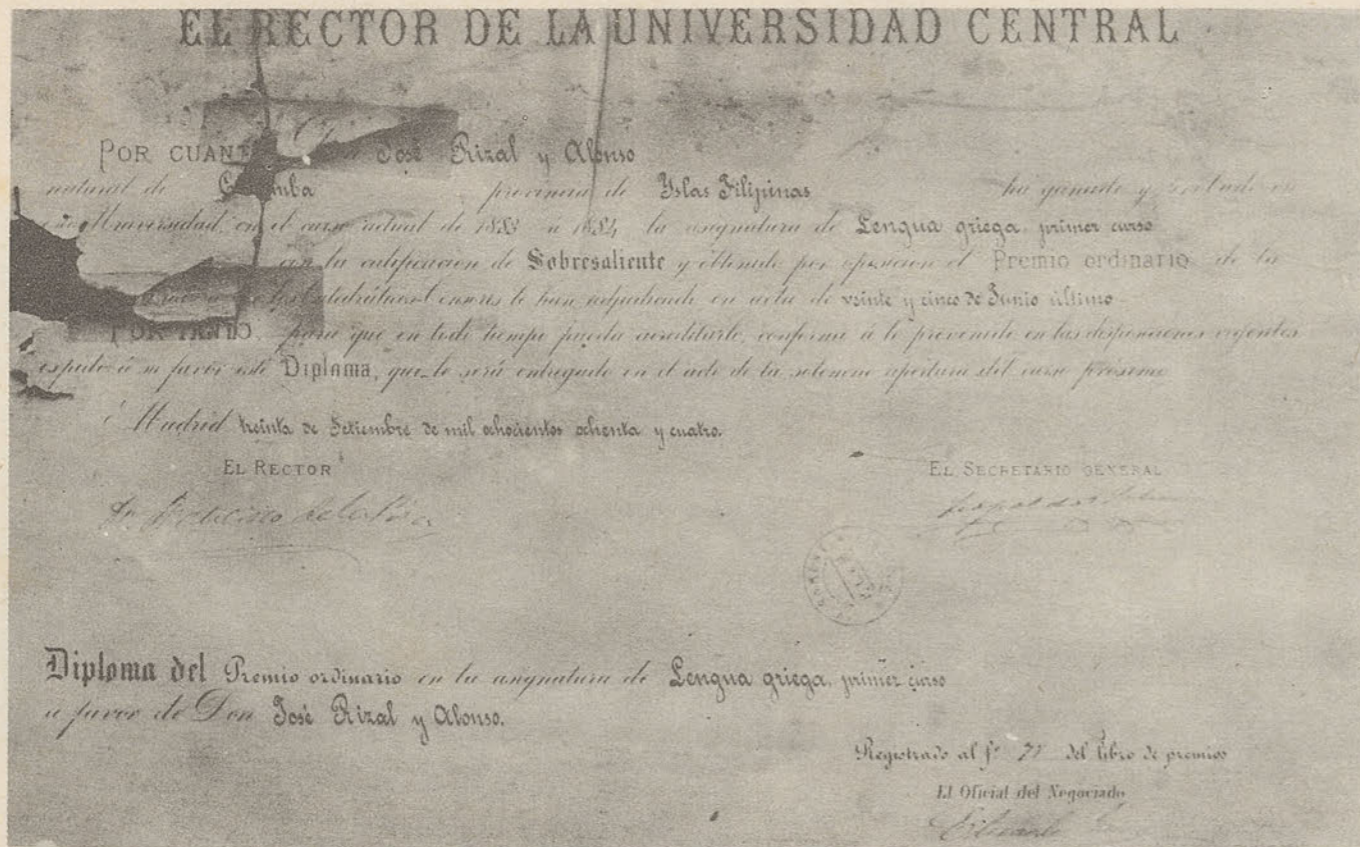 EL RECTOR DE LA UNIVERSIDAD CENTRAL
POR CUANT José Rizal y Alonso
natural de mba provincia de Yslas Filipinas ha ganado y probado en
Universidad, en el curso actual de 1883 a 1884 la asignatura de Lengua griega, primer curso
con la calificacion de Sobresaliente y obtenido por oposicion el Premio ordinario de la
le han adjudicado en acta de veinte y cinco de Junio último
POR TANTO, para que en todo tiempo pueda acreditarlo, conforme á lo prevenido en las disposiciones vigentes
expido á su favor este Diploma, que le será entregado en el acto de la solemne apertura del curso proximo
Madrid treinta de Setiembre de mil ochocientos ochenta y cuatro.
EL RECTOR
EL SECRETARIO GENERAL
Diploma del Premio ordinario en la asignatura de Lengua griega, primer curso
a favor de Don José Rizal y Alonso.
Registrado al fº del libro de premios
El Oficial del Negociado